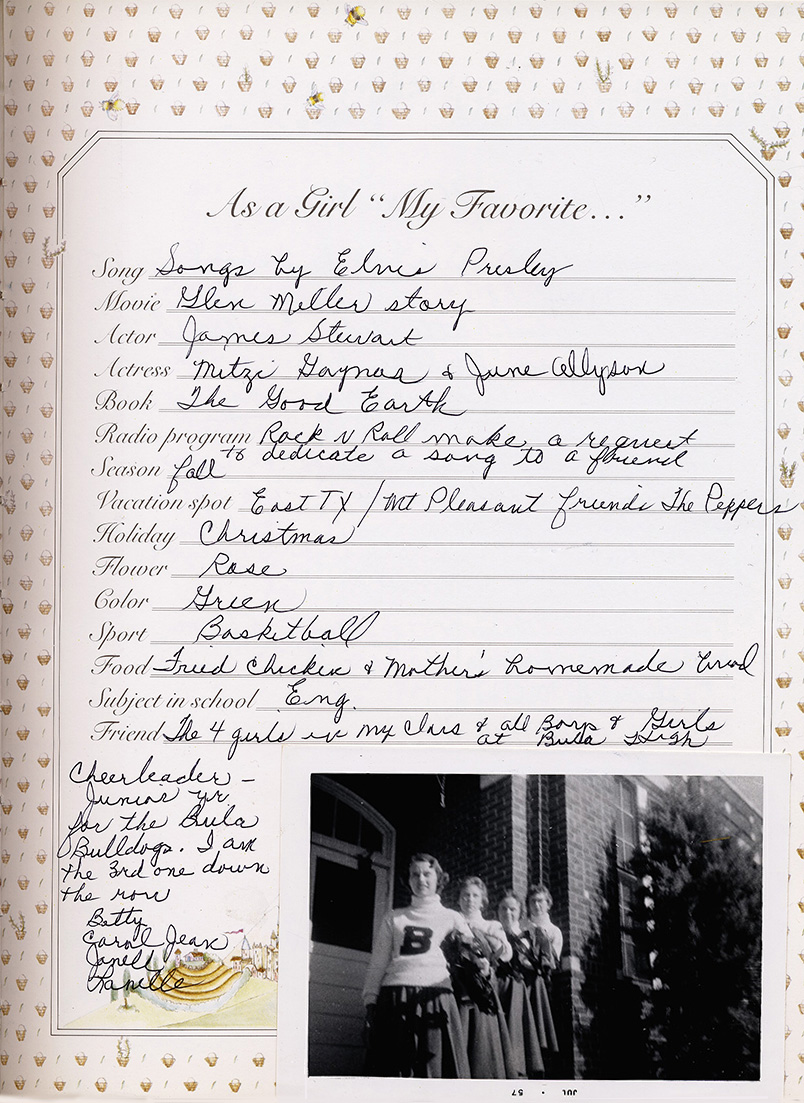 As a Girl "My Favorite..."
Song Songs by Elvis Presley
Movie Glen Meller story
Actor James Stewart
Actress Mitzi Gaynor & June Allyson
Book The Good Earth
Radio program Rock N Roll make a request
to dedicate a song to a friend
Season fall
Vacation spot East TX / Mt Pleasant friends The Peppers
Holiday Christmas
Flower Rose
Color Green
Sport Basketball
Food Fried chicken & Mother's homemade bread
Subject in school Eng.
Friend The 4 girls in my class & all Boys & Girls
at Bula High
Cheerleader –
Junior yr
for the Bula
Bulldogs. I am
the 3rd one down
the row
Betty
Carol Jean
Janell
Lanelle
B
JUL • 57